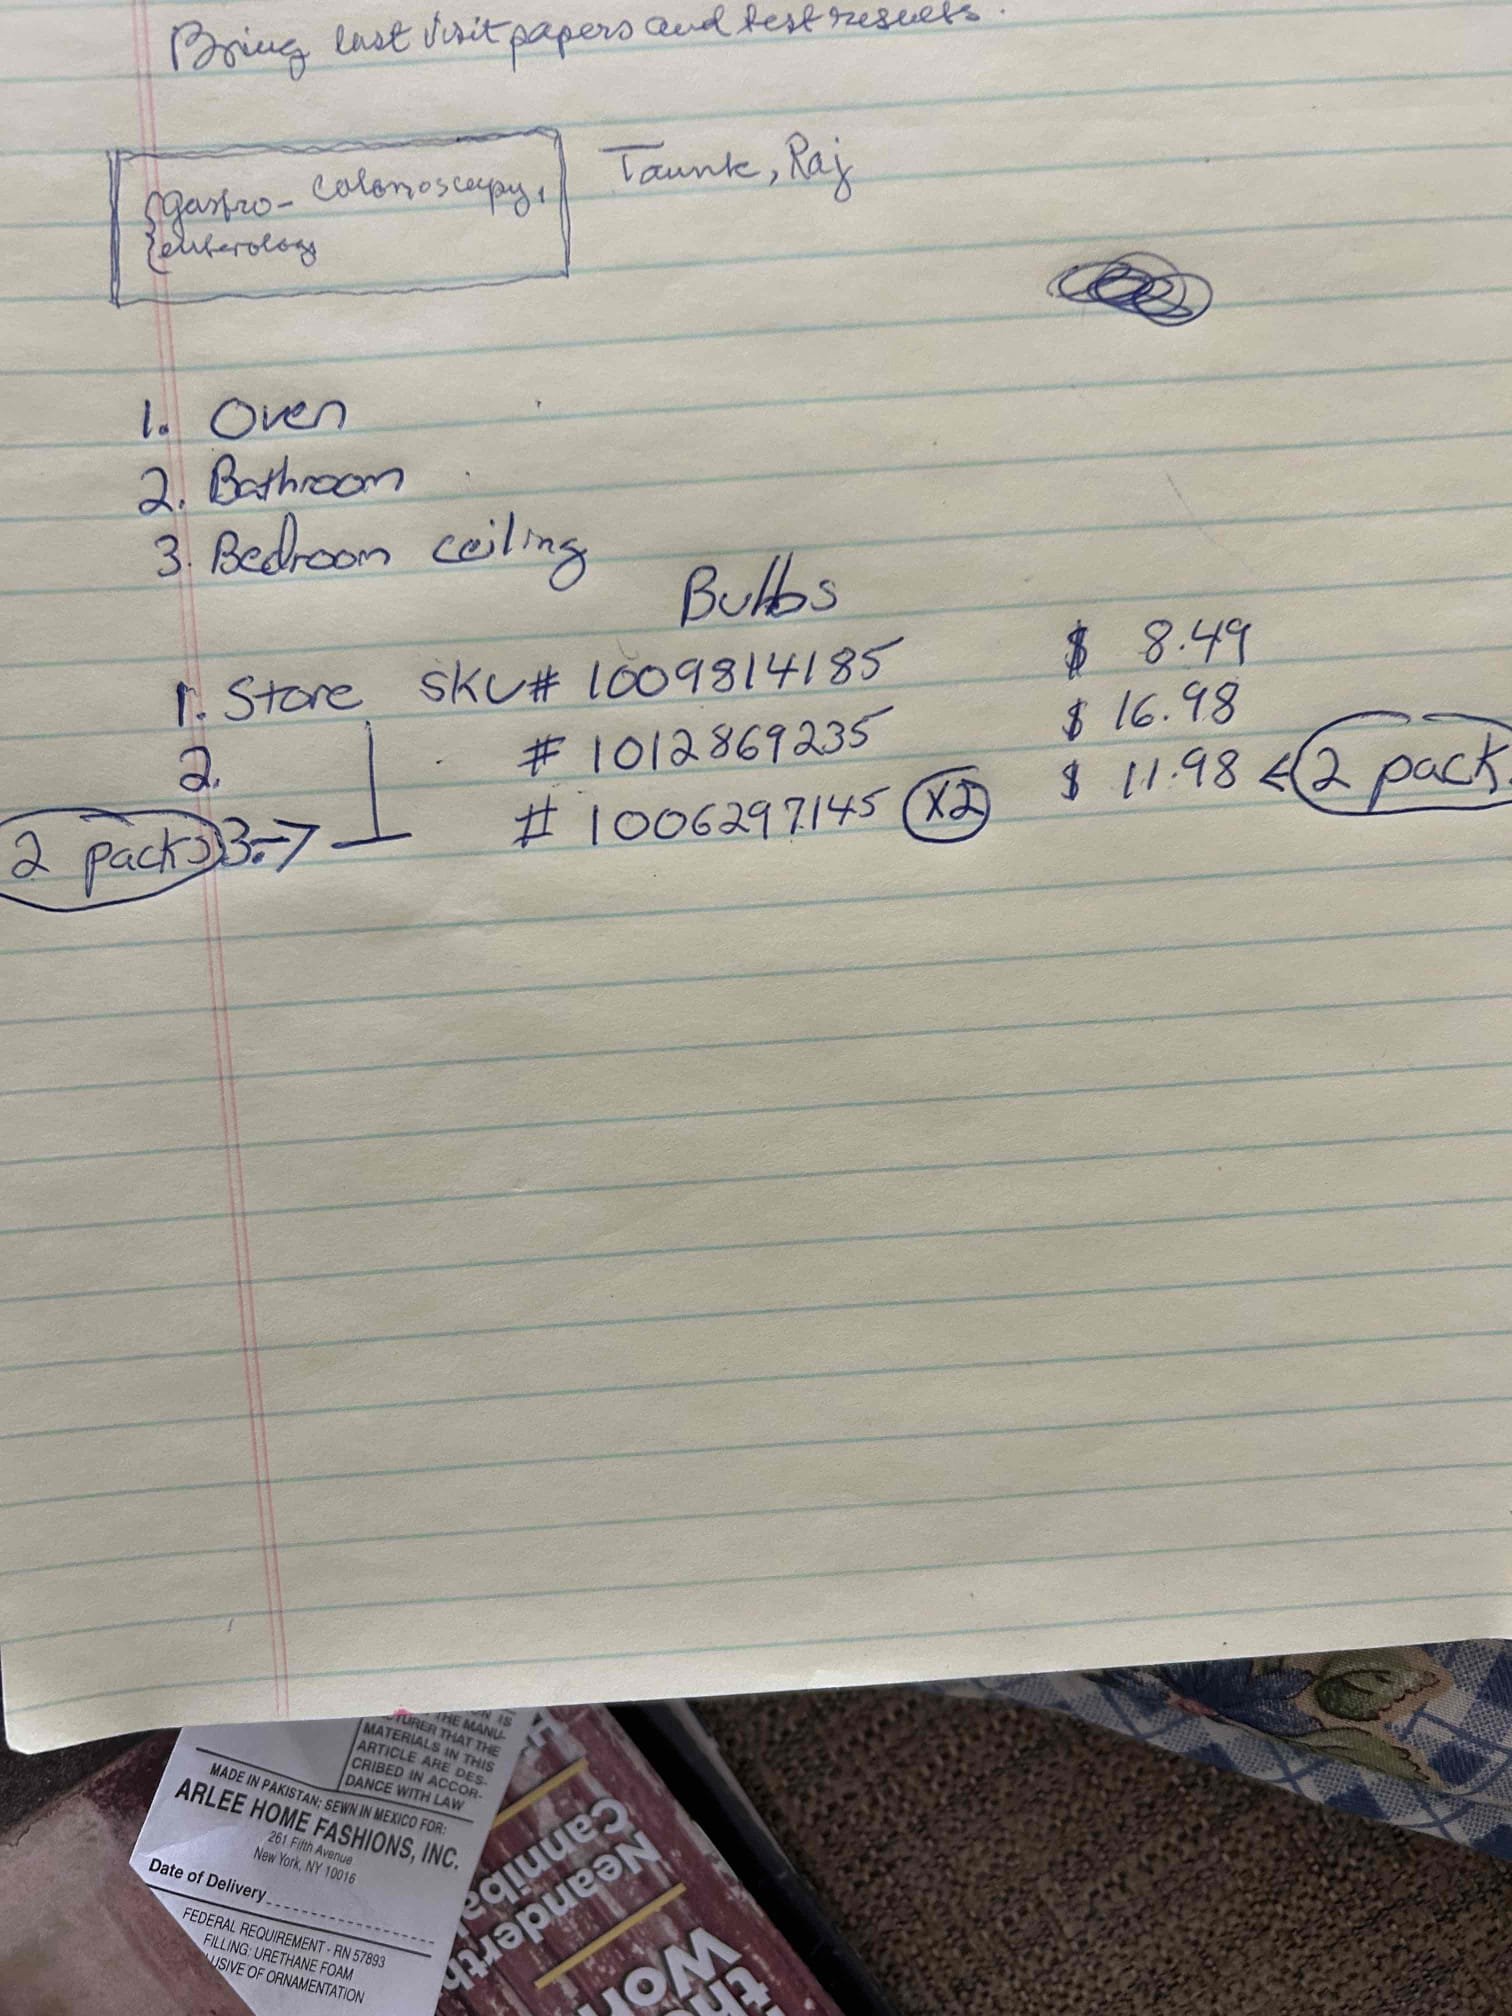 Bring last visit papers and test results.
{gastro- colonoscopy,
{enterology
Taunk, Raj
1. Oven
2. Bathroom
3. Bedroom ceiling
Bulbs
1. Store SKU# 1009814185 $ 8.49
2. # 1012869235 $ 16.98
2 packs 3.→ # 1006297145 X2 $ 11.98 < 2 pack.
THE MANU-
TURER THAT THE
MATERIALS IN THIS
ARTICLE ARE DES-
CRIBED IN ACCOR-
DANCE WITH LAW
MADE IN PAKISTAN; SEWN IN MEXICO FOR:
ARLEE HOME FASHIONS, INC.
261 Fifth Avenue
New York, NY 10016
Date of Delivery
FEDERAL REQUIREMENT - RN 57893
FILLING: URETHANE FOAM
USIVE OF ORNAMENTATION
Neanderth
Canniba